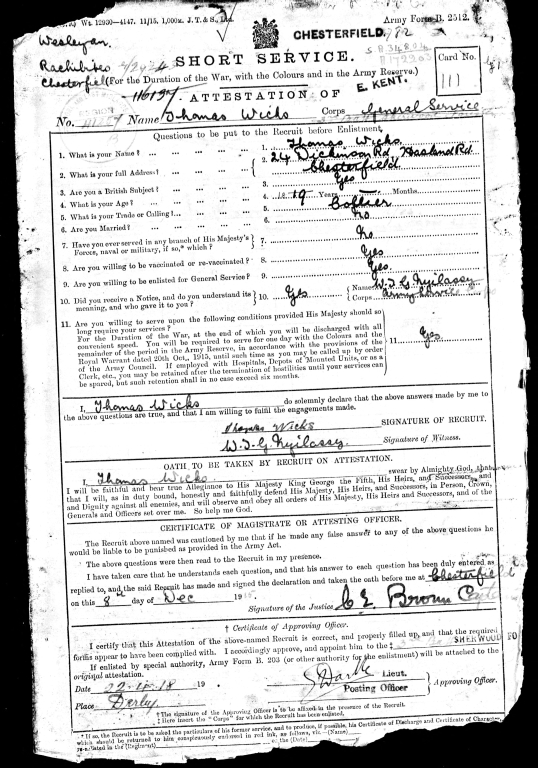 Wt. 12930—4147. 11/15. 1,000m. J. T. & S., Ltd.
Army Form B. 2512.
Wesleyan.
CHESTERFIELD.
SHORT SERVICE.
Chesterfield
(For the Duration of the War, with the Colours and in the Army Reserve.)
Card No.
111
E. KENT.
116137
ATTESTATION OF
No. Name Thomas Wicks Corps General Service
Questions to be put to the Recruit before Enlistment.
1. What is your Name? 1. Thomas Wicks
2. What is your full Address? 2. 24 Dickinson Rd Hasland Rd
Chesterfield
3. Are you a British Subject? 3. Yes
4. What is your Age? 4. 19 Years Months
5. What is your Trade or Calling? 5. Collier
6. Are you Married? 6. No
7. Have you ever served in any branch of His Majesty's 7. No
Forces, naval or military, if so,* which?
8. Are you willing to be vaccinated or re-vaccinated? 8. Yes
9. Are you willing to be enlisted for General Service? 9. Yes.
10. Did you receive a Notice, and do you understand its 10. Yes Name W. J. G. Nyilassy
meaning, and who gave it to you? Corps
11. Are you willing to serve upon the following conditions provided His Majesty should so
long require your services?
For the Duration of the War, at the end of which you will be discharged with all
convenient speed. You will be required to serve for one day with the Colours and the
remainder of the period in the Army Reserve, in accordance with the provisions of the
Royal Warrant dated 20th Oct., 1915, until such time as you may be called up by order
of the Army Council. If employed with Hospitals, Depots of Mounted Units, or as a
Clerk, etc., you may be retained after the termination of hostilities until your services can
be spared, but such retention shall in no case exceed six months.
11 Yes
I, Thomas Wicks do solemnly declare that the above answers made by me to
the above questions are true, and that I am willing to fulfil the engagements made.
Thomas Wicks SIGNATURE OF RECRUIT.
W. J. G. Nyilassy Signature of Witness.
OATH TO BE TAKEN BY RECRUIT ON ATTESTATION.
I, Thomas Wicks. swear by Almighty God, that
I will be faithful and bear true Allegiance to His Majesty King George the Fifth, His Heirs, and Successors, and
that I will, as in duty bound, honestly and faithfully defend His Majesty, His Heirs, and Successors, in Person, Crown,
and Dignity against all enemies, and will observe and obey all orders of His Majesty, His Heirs and Successors, and of the
Generals and Officers set over me. So help me God.
CERTIFICATE OF MAGISTRATE OR ATTESTING OFFICER.
The Recruit above named was cautioned by me that if he made any false answer to any of the above questions he
would be liable to be punished as provided in the Army Act.
The above questions were then read to the Recruit in my presence.
I have taken care that he understands each question, and that his answer to each question has been duly entered as
replied to, and the said Recruit has made and signed the declaration and taken the oath before me at Chesterfield
on this 8th day of Dec 191
Signature of the Justice C E Broom
† Certificate of Approving Officer.
I certify that this Attestation of the above-named Recruit is correct, and properly filled up, and that the required
forms appear to have been complied with. I accordingly approve, and appoint him to the ‡ SHERWOOD FO
If enlisted by special authority, Army Form B. 203 (or other authority for the enlistment) will be attached to the
original attestation.
Date 22-4-18 19 .
Lieut.
Posting Officer
Approving Officer.
Place Derby
† The signature of the Approving Officer is to be affixed in the presence of the Recruit.
‡ Here insert the "Corps" for which the Recruit has been enlisted.
* If so, the Recruit is to be asked the particulars of his former service, and to produce, if possible, his Certificate of Discharge and Certificate of Character,
which should be returned to him conspicuously endorsed in red ink, as follows, viz.—(Name)
re-enlisted in the (Regiment) on the (Date)